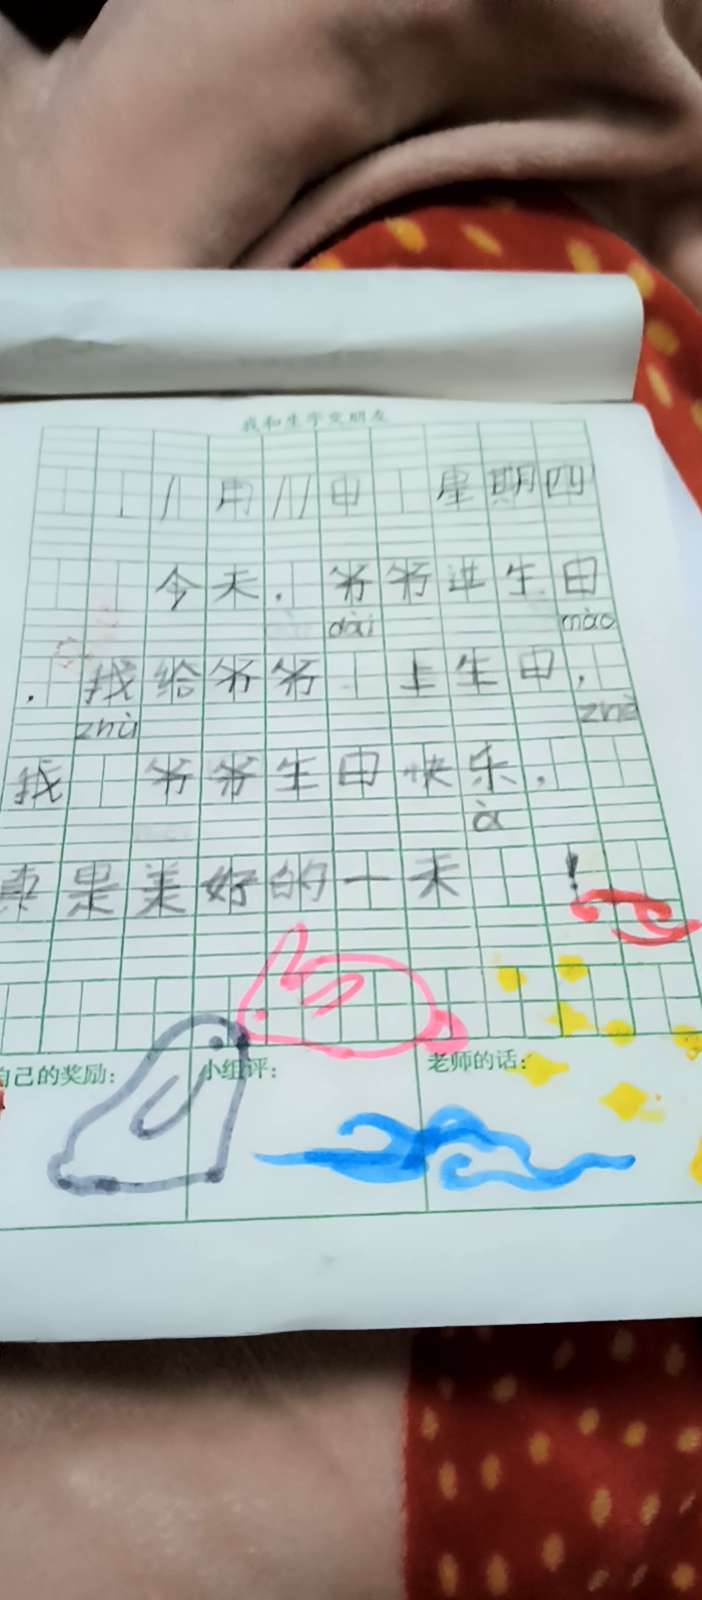 我和生字交朋友
1月11日 星期四
今天，爷爷过生日
dài mào
，我给爷爷 上生日，
zhù
我 爷爷生日快乐，
à
真是美好的一天 ！
自己的奖励： 小组评： 老师的话：